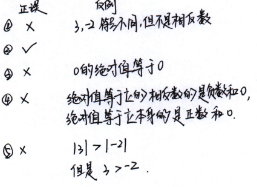 正误 反例
① × 3,-2 符号不同,但不是相反数
② ✓
③ × 0的绝对值等于0
④ × 绝对值等于它的相反数的是负数和0,
绝对值等于它本身的是正数和0.
⑤ × |3|>|-2|
但是 3>-2.